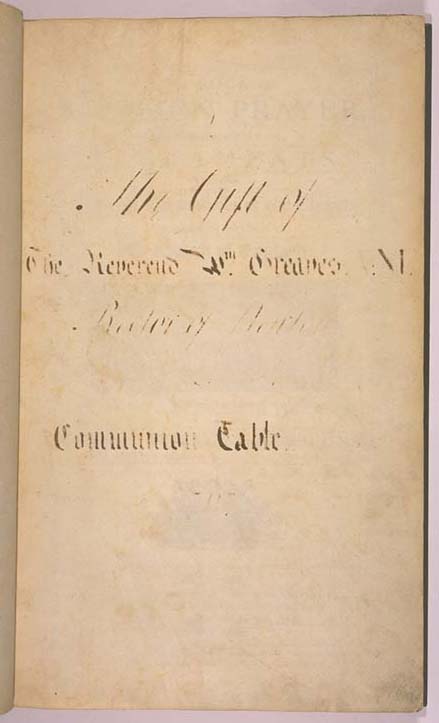 The Gift of
The Reverend Wm. Greaves. M.
Rector of
Communion Table.